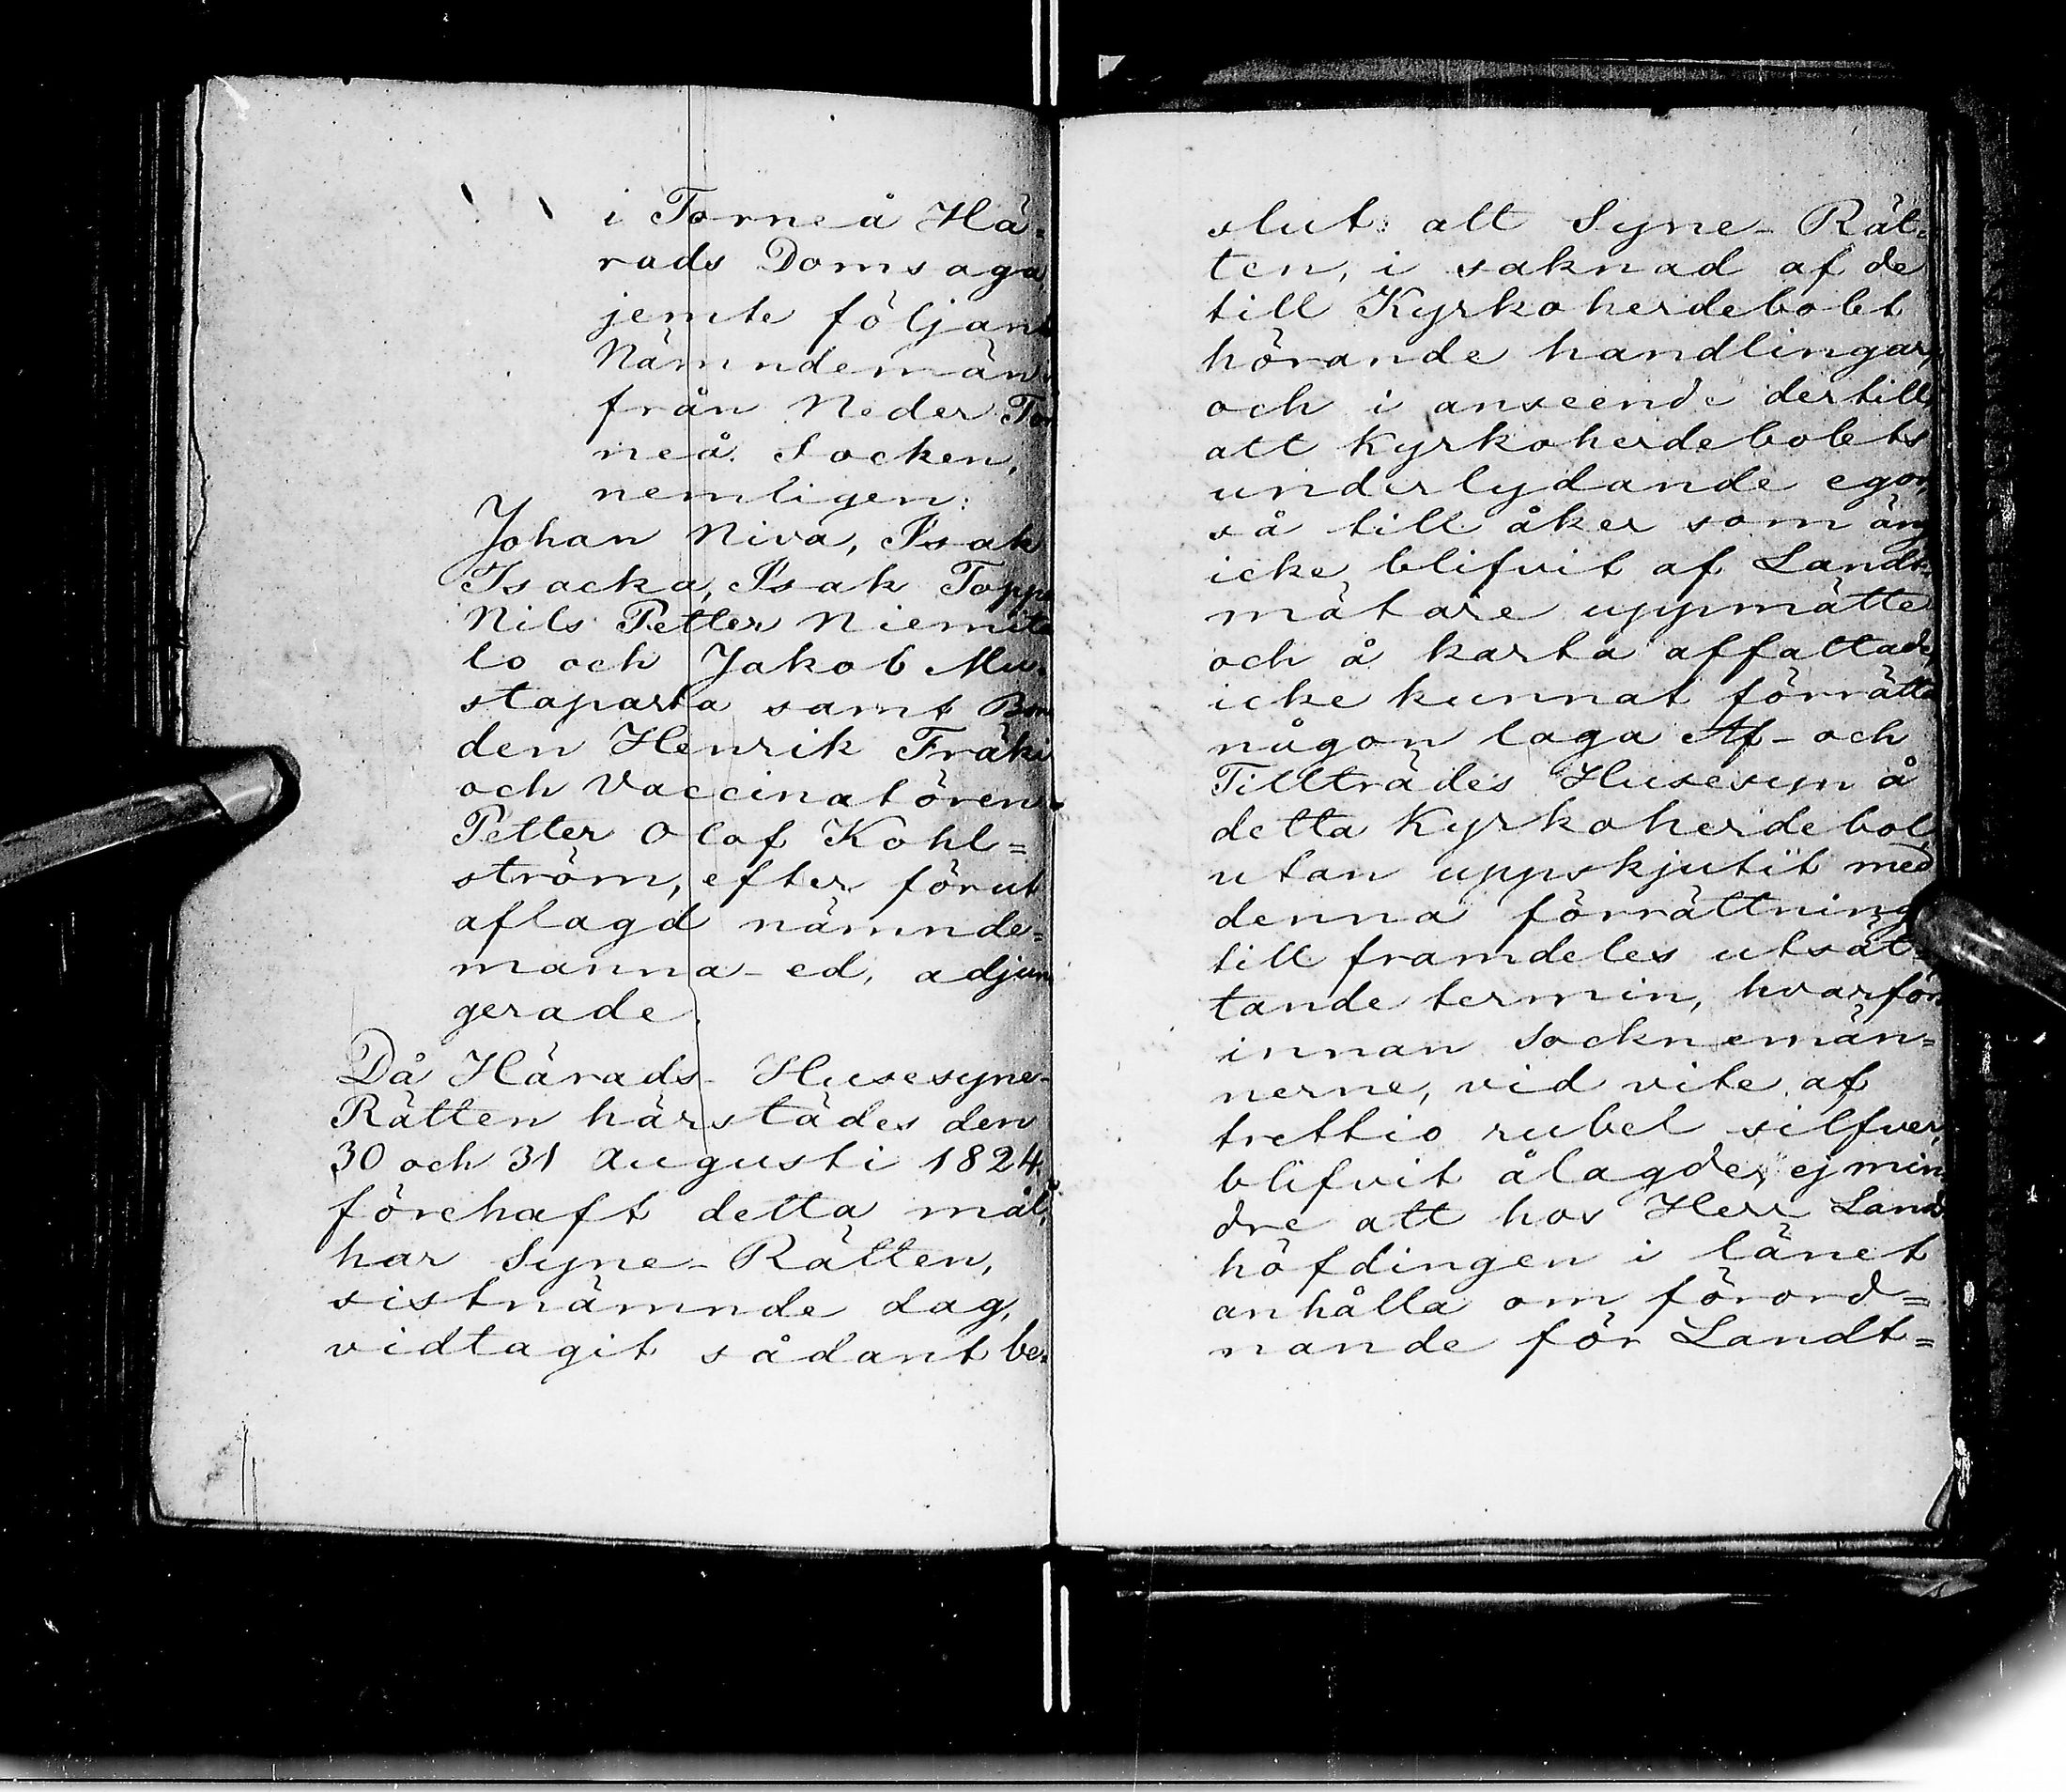 i Torneå Hä-
rads Domsaga
jemte följand
Nämndemän
från Neder Tor
neå Socken,
nemligen:
Johan Niva, Isak
Isacka, Isak Toppo
Nils Petter Niemite
lo och Jakob Mu-
staparta samt Bon
den Henrik Fräki
och Vaccinatören
Petter Olof Kohl=
ström, efter förut
aflagd nämnde=
manna-ed, adjun
gerade.
Då Härads-Husesyne-
Rätten härstädes den
30 och 31 Augusti 1824,
förehaft detta mål,
har Syne-Rätten,
sistnämnde dag,
vidtagit sådant be-
slut: att Syne-Rät-
ten, i saknad af de
till Kyrkoherdebolet
hörande handlingar,
och i anseende dertill,
att Kyrkoherdebolets
underlydande egor,
så till åker som äng
icke blifvit af Landt-
mätare uppmätte
och å karta affattade,
icke kunnat förrätta
någon laga Af- och
Tillträdes Husesyn å
detta Kyrkoherdebol,
utan uppskjutit med
denna förrättning
till framdeles utsät-
tande termin, hvarför
innan socknemän=
nerne, vid vite af
trettio rubel silfver,
blifvit ålagde, ej min
dre att hos Herr Land
höfdingen i länet
anhålla om förord=
nande för Landt=